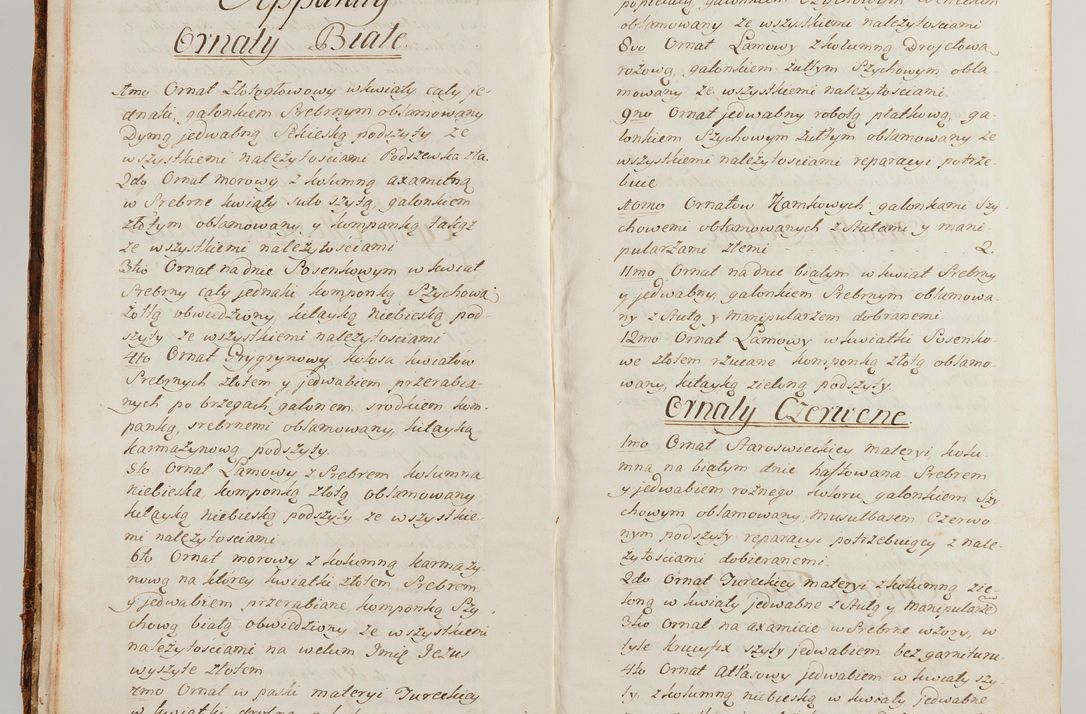 Apparaty
Ornaty Białe
1mo Ornat złotogłowowy w kwiaty cały je-
dnaki, galonkiem Srebrnym oblamowany
Dymą jedwabną Setkieską podszyty ze
wszystkiemi należytościami Podszewka zła.
2do Ornat morowy z kolumną axamitną
w Srebrne kwiaty suto szytą, galonkiem
złotym oblamowany, y kompanką takąż
ze wszystkiemi należytościami
3tio Ornat na dnie Posenkowym w kwiat
Srebrny cały jednaki komponką Szychową
żołtą obwiedziony, kitayką niebieską pod-
szyty ze wszystkiemi należytościami
4to Ornat Grygrynowy kolosa kwiatów
Srebrnych złotem y jedwabiem, przerabia-
nych po brzegach, galonem, srodkiem kom-
panką, srebrnemi oblamowany, kitayką
karmazynową podszyty.
5to Ornat Lamowy z Srebrem kolumna
niebieska, komponką złotą oblamowany
kitayką niebieską podszyty ze wszystkie-
mi należytościami
6to Ornat morowy z kolumną karmazy-
nową na ktorey kwiatki złotem Srebrem
y jedwabiem przerabiane, komponką Szy-
chową białą obwiedziony ze wszystkiemi
należytościami na welum Imię Jezus
wyszyte złotem
7mo Ornat w paski materyi Tureckiey
w kwiatki
popielaty galonkiem Szychowym
oblamowany ze wszystkiemi należytościami
8vo Ornat Lamowy z kolumną Drojetową
rożową, galonkiem żułtym Szychowym obla-
mowany ze wszystkiemi należytościami
9no Ornat jedwabny robotą płatkową, ga-
lonkiem Szychowym żułtym oblamowany ze
wszystkiemi należytościami reparacyi potrze-
buie
10mo Ornatow Kamkowych galonkami Szy-
chowemi oblamowanych z Stułami y mani
pularzami złemi 2.
11mo Ornat na dnie białym w kwiat Srebrny
y jedwabny, galonkiem Srebrnym oblamowa-
ny z Stułą y Manipularzem dobranemi
12mo Ornat Lamowy w kwiatki Posenko-
we złotem rzucane komponką złotą oblamo-
wany, kitayką zieloną podszyty.
Ornaty Czerwone.
1mo Ornat Staroswieckiey materyi kolu-
mna na białym dnie haftowana Srebrem
y jedwabiem rożnego koloru, galonkiem Szy
chowym oblamowany, musułbasem Czerwo-
nym podszyty reparacyi potrzebuiący z nale-
żytościami dobieranemi.
2do Ornat Tureckiey materyi z kolumną zie-
loną w kwiaty jedwabne z Stułą y Manipularze
3tio Ornat na axamicie w Srebrne wzory, w
tyle krucyfix szyty jedwabiem bez garnituru.
4to Ornat Atłasowy jedwabiem w kwiaty szy-
ty, z kolumną niebieską w kwiaty jedwabne